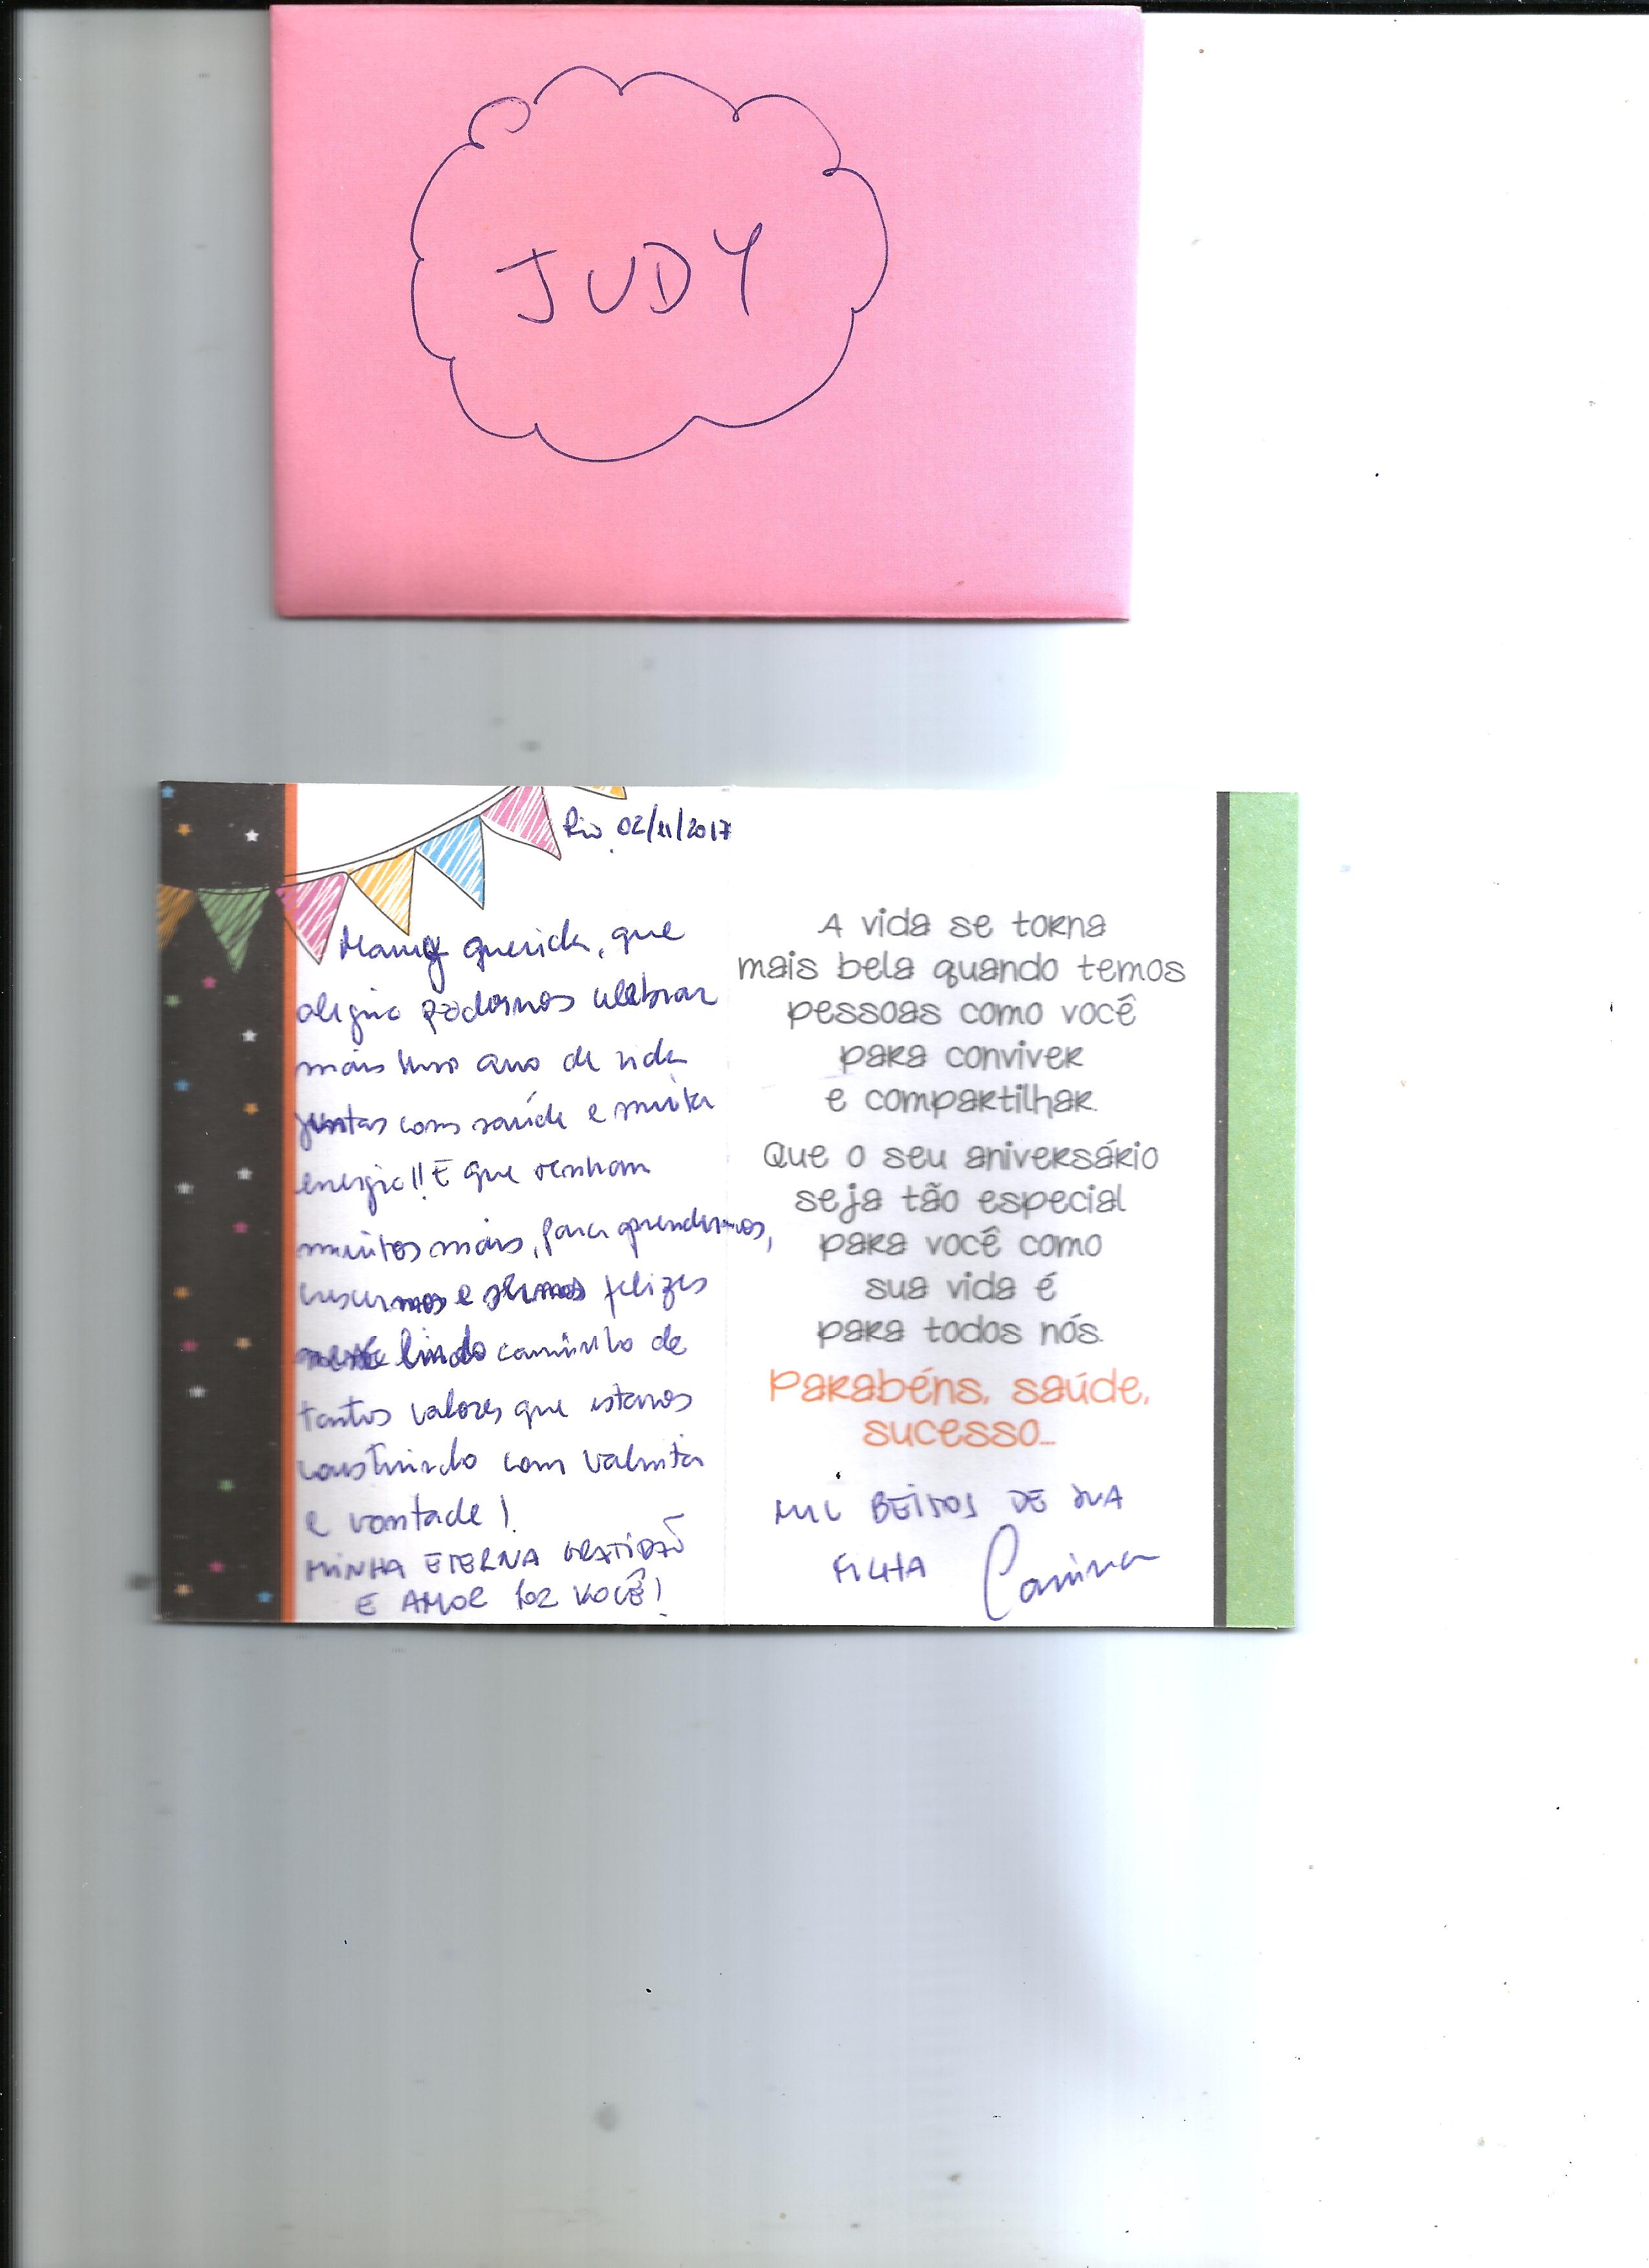 JUDY
Rio, 02/11/2017
Mamy querida, que
alegria podermos celebrar
mais um ano de vida
juntas com saúde e muita
energia!! E que venham
muitos mais, para aprendermos,
crescermos e sermos felizes
lindo caminho de
tantos valores que estamos
construindo com valentia
e vontade!
MINHA ETERNA GRATIDÃO
E AMOR POR VOCÊ!
A vida se torna
mais bela quando temos
pessoas como você
para conviver
e compartilhar.
Que o seu aniversário
seja tão especial
para você como
sua vida é
para todos nós.
Parabéns, saúde,
sucesso...
MIL BEIJOS DE SUA
FILHA